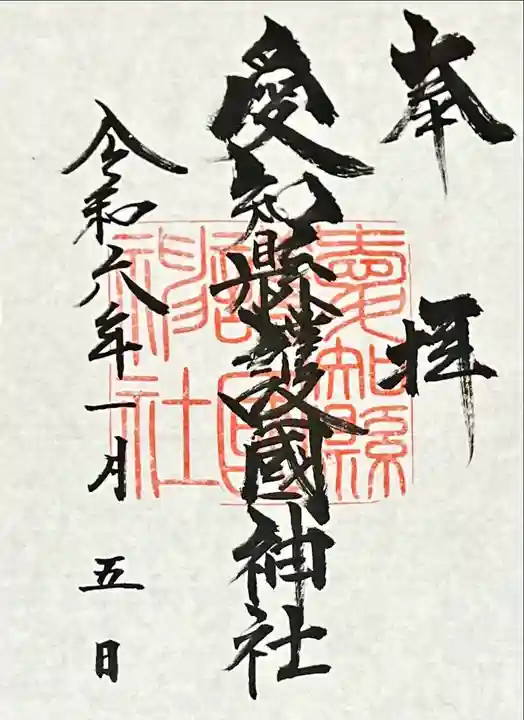 奉拝
愛知縣護國神社
愛知縣
護國
神社
令和六年一月五日